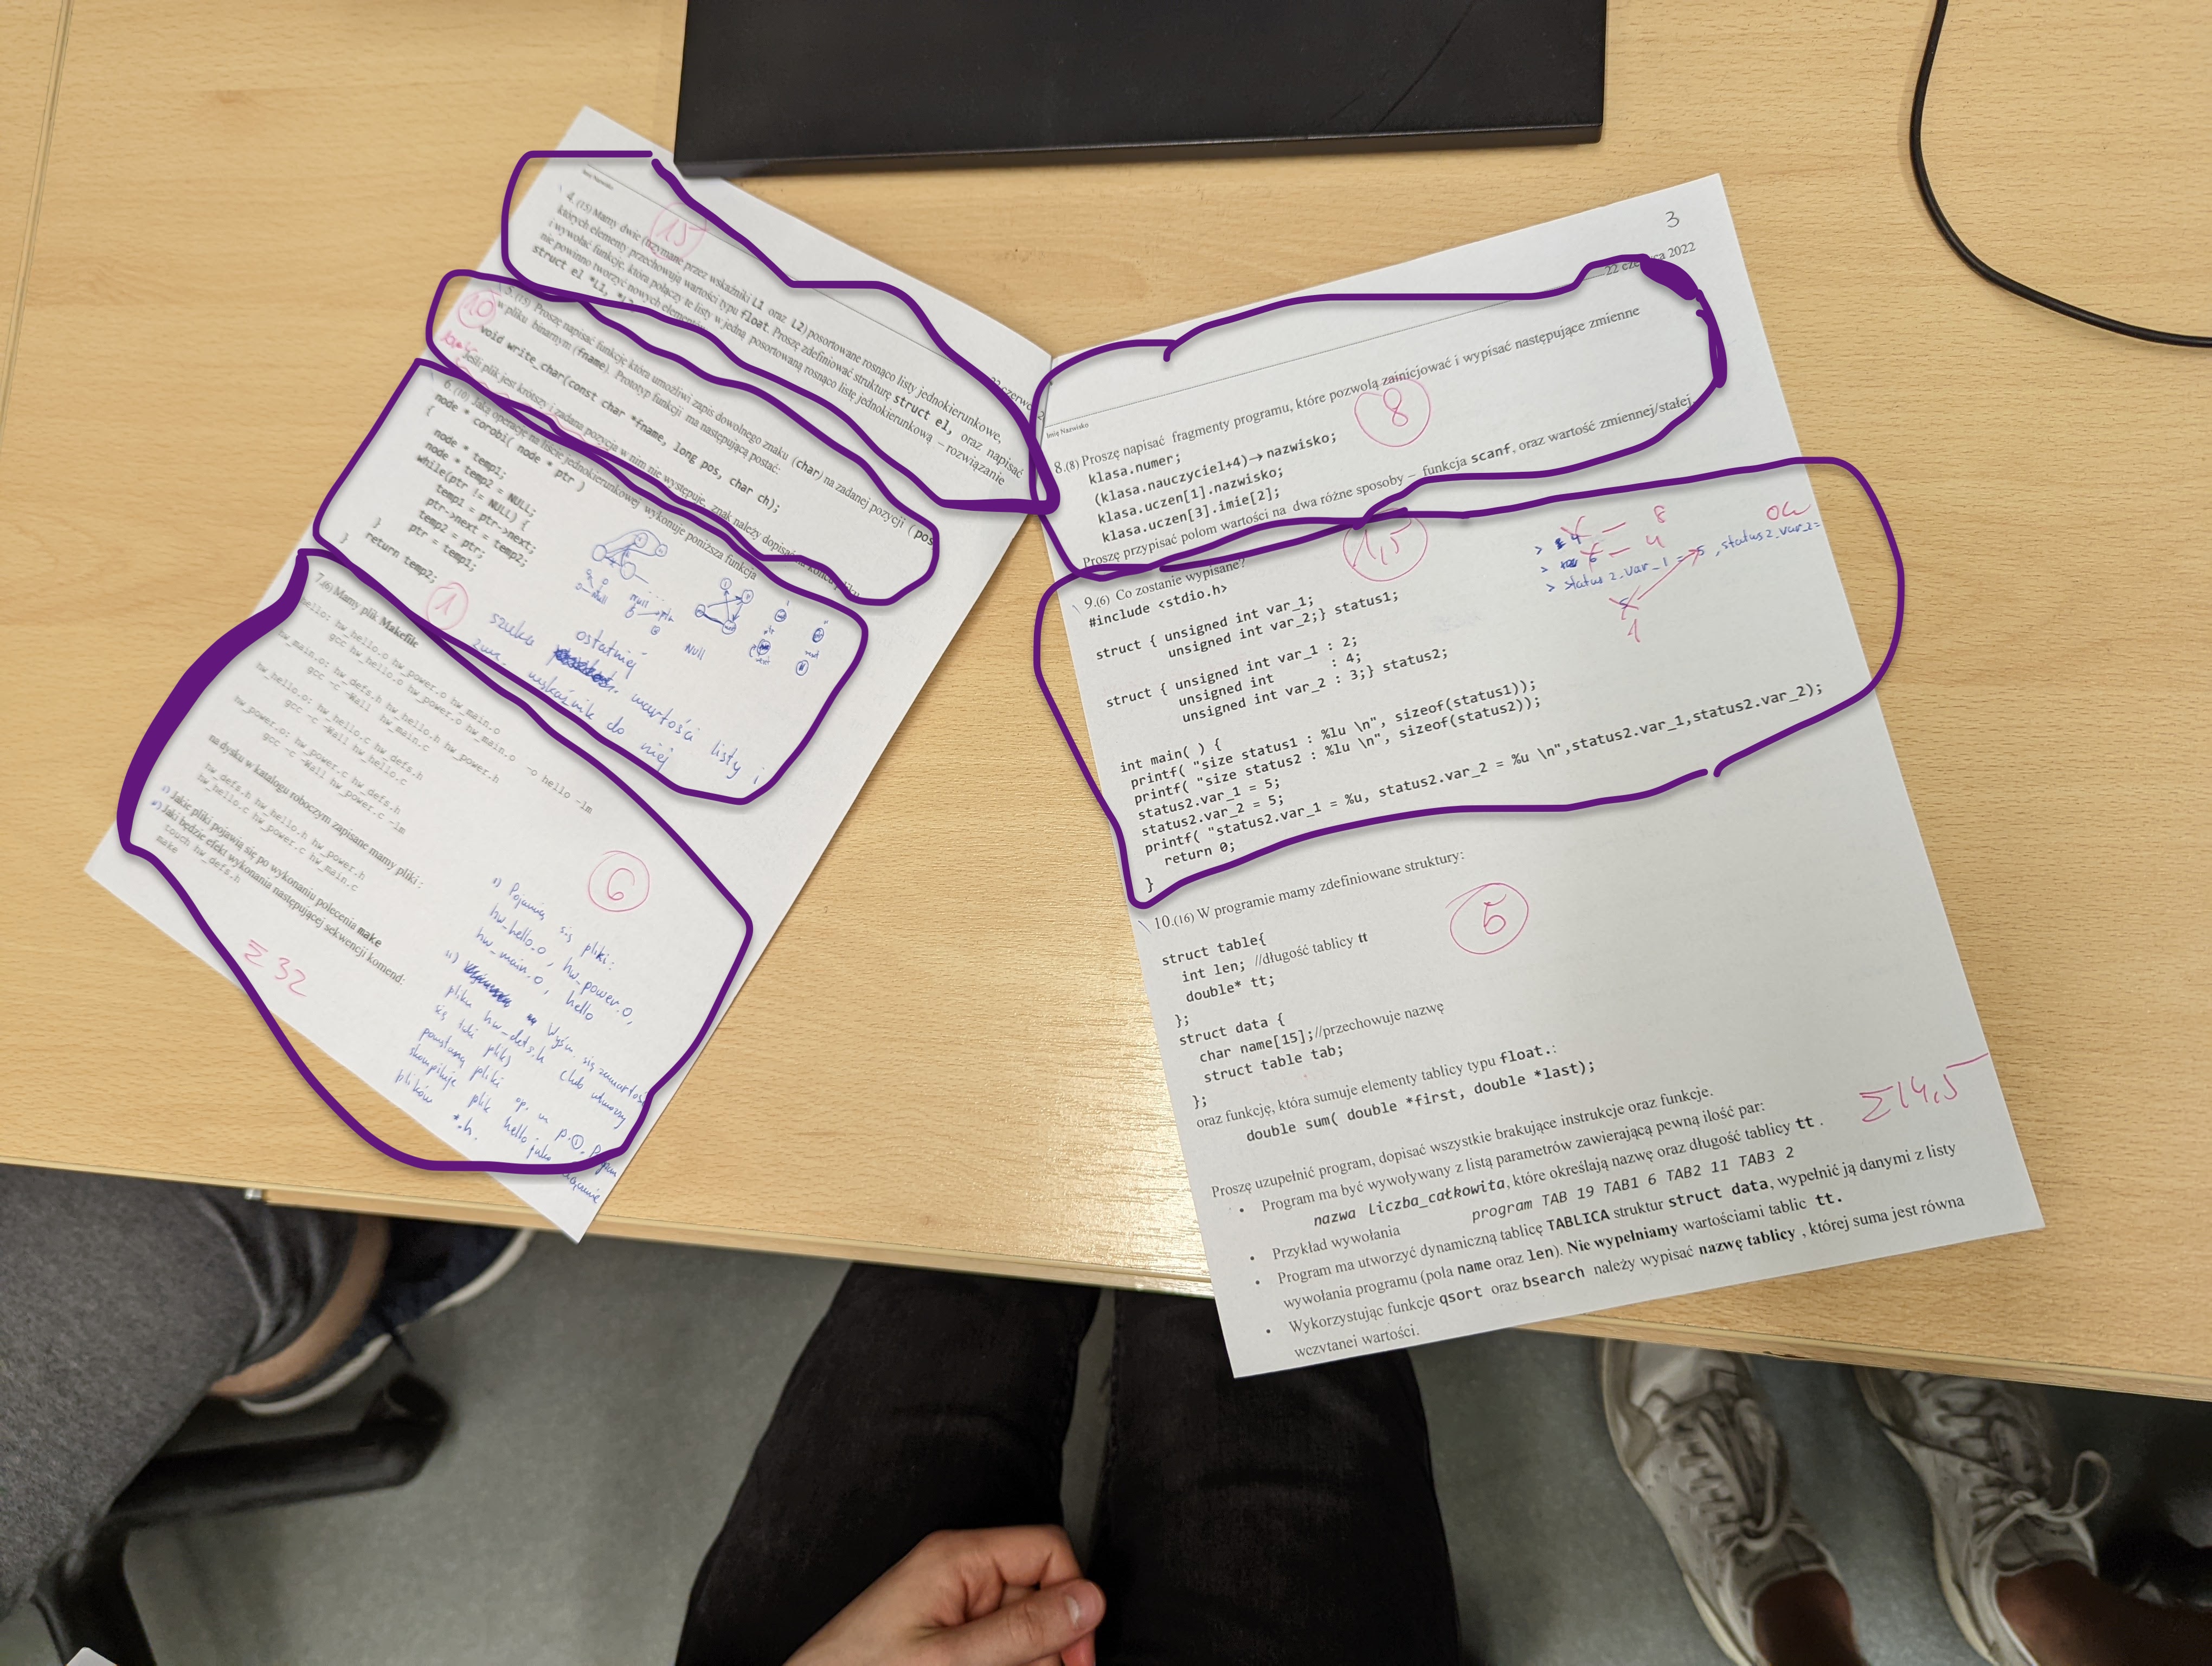 Imię Nazwisko
22 czerwca 2
15
4. (15) Mamy dwie (trzymane przez wskaźniki L1 oraz L2) posortowane rosnąco listy jednokierunkowe,
których elementy przechowują wartości typu float. Proszę zdefiniować strukturę struct el, oraz napisać
i wywołać funkcję, która połączy te listy w jedną posortowaną rosnąco listę jednokierunkową – rozwiązanie
nie powinno tworzyć nowych elementów
struct el *L1, *L2
10
5. (15) Proszę napisać funkcję która umożliwi zapis dowolnego znaku (char) na zadanej pozycji (pos
w pliku binarnym (fname). Prototyp funkcji ma następującą postać:
void write_char(const char *fname, long pos, char ch);
Jeśli plik jest krótszy i zadana pozycja w nim nie występuje, znak należy dopisać na końcu pliku
6. (10) Jaką operację na liście jednokierunkowej wykonuje poniższa funkcja
node * corobi( node * ptr )
{
node * temp1;
node * temp2 = NULL;
while(ptr != NULL) {
temp1 = ptr->next;
ptr->next = temp2;
temp2 = ptr;
ptr = temp1;
}
return temp2;
}
null
null
1
szuka ostatniej wartości listy i
zwr. wskaźnik do niej
NULL
7.(6) Mamy plik Makefile
hello: hw_hello.o hw_power.o hw_main.o
gcc hw_hello.o hw_power.o hw_main.o -o hello -lm
hw_main.o: hw_defs.h hw_hello.h hw_power.h
gcc -c -Wall hw_main.c
hw_hello.o: hw_hello.c hw_defs.h
gcc -c -Wall hw_hello.c
hw_power.o: hw_power.c hw_defs.h
gcc -c -Wall hw_power.c -lm
na dysku w katalogu roboczym zapisane mamy pliki:
hw_defs.h hw_hello.h hw_power.h
hw_hello.c hw_power.c hw_main.c
i) Jakie pliki pojawią się po wykonaniu polecenia make
ii) Jaki będzie efekt wykonania następującej sekwencji komend:
touch hw_defs.h
make
6
i) Pojawią się pliki:
hw_hello.o, hw_power.o,
hw_main.o, hello
ii) Wyśw. się zawartość
pliku hw_defs.h (lub utworzy
się taki plik)
powstaną pliki op. w p. i,
skompiluje plik hello jako
plików *.h.
Σ 32
3
22 czerwca 2022
Imię Nazwisko
8.(8) Proszę napisać fragmenty programu, które pozwolą zainicjować i wypisać następujące zmienne
klasa.numer;
(klasa.nauczyciel+4)→nazwisko;
klasa.uczen[1].nazwisko;
klasa.uczen[3].imie[2];
8
Proszę przypisać polom wartości na dwa różne sposoby – funkcja scanf, oraz wartość zmiennej/stałej
9.(6) Co zostanie wypisane?
1,5
#include <stdio.h>
struct { unsigned int var_1;
unsigned int var_2;} status1;
struct { unsigned int var_1 : 2;
unsigned int : 4;
unsigned int var_2 : 3;} status2;
int main( ) {
printf( "size status1 : %lu \n", sizeof(status1));
printf( "size status2 : %lu \n", sizeof(status2));
status2.var_1 = 5;
status2.var_2 = 5;
printf( "status2.var_1 = %u, status2.var_2 = %u \n",status2.var_1,status2.var_2);
return 0;
}
> 4 – 8
> 6 – 4
> status2.var_1 = 5, status2.var_2=
ok
1
10.(16) W programie mamy zdefiniowane struktury:
5
struct table{
int len; //długość tablicy tt
double* tt;
};
struct data {
char name[15];//przechowuje nazwę
struct table tab;
};
oraz funkcję, która sumuje elementy tablicy typu float.:
double sum( double *first, double *last);
Σ14,5
Proszę uzupełnić program, dopisać wszystkie brakujące instrukcje oraz funkcje.
• Program ma być wywoływany z listą parametrów zawierającą pewną ilość par:
nazwa liczba_całkowita, które określają nazwę oraz długość tablicy tt .
• Przykład wywołania program TAB 19 TAB1 6 TAB2 11 TAB3 2
• Program ma utworzyć dynamiczną tablicę TABLICA struktur struct data, wypełnić ją danymi z listy
wywołania programu (pola name oraz len). Nie wypełniamy wartościami tablic tt.
• Wykorzystując funkcje qsort oraz bsearch należy wypisać nazwę tablicy , której suma jest równa
wczytanej wartości.